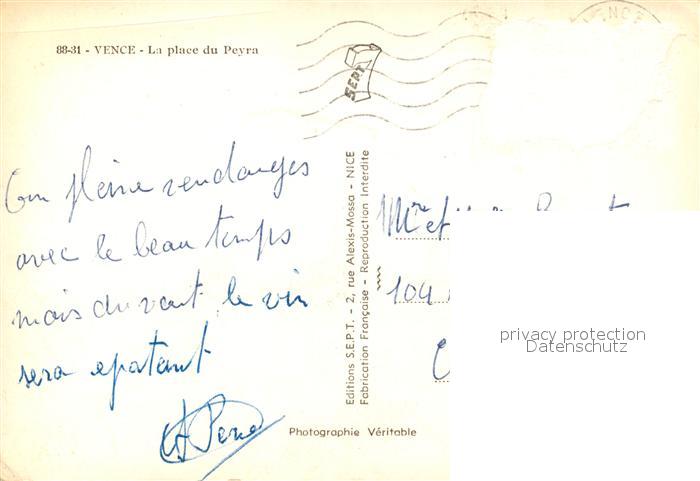 88-31 - VENCE - La place du Peyra
VENCE
SEPT
En pleine vendanges
avec le beau temps
mais du vent, le vin
sera epatant
Editions S.E.P.T. - 2, rue Alexis-Mossa - NICE
Fabrication Française - Reproduction Interdite
Mme et
104
privacy protection
Datenschutz
Photographie Véritable